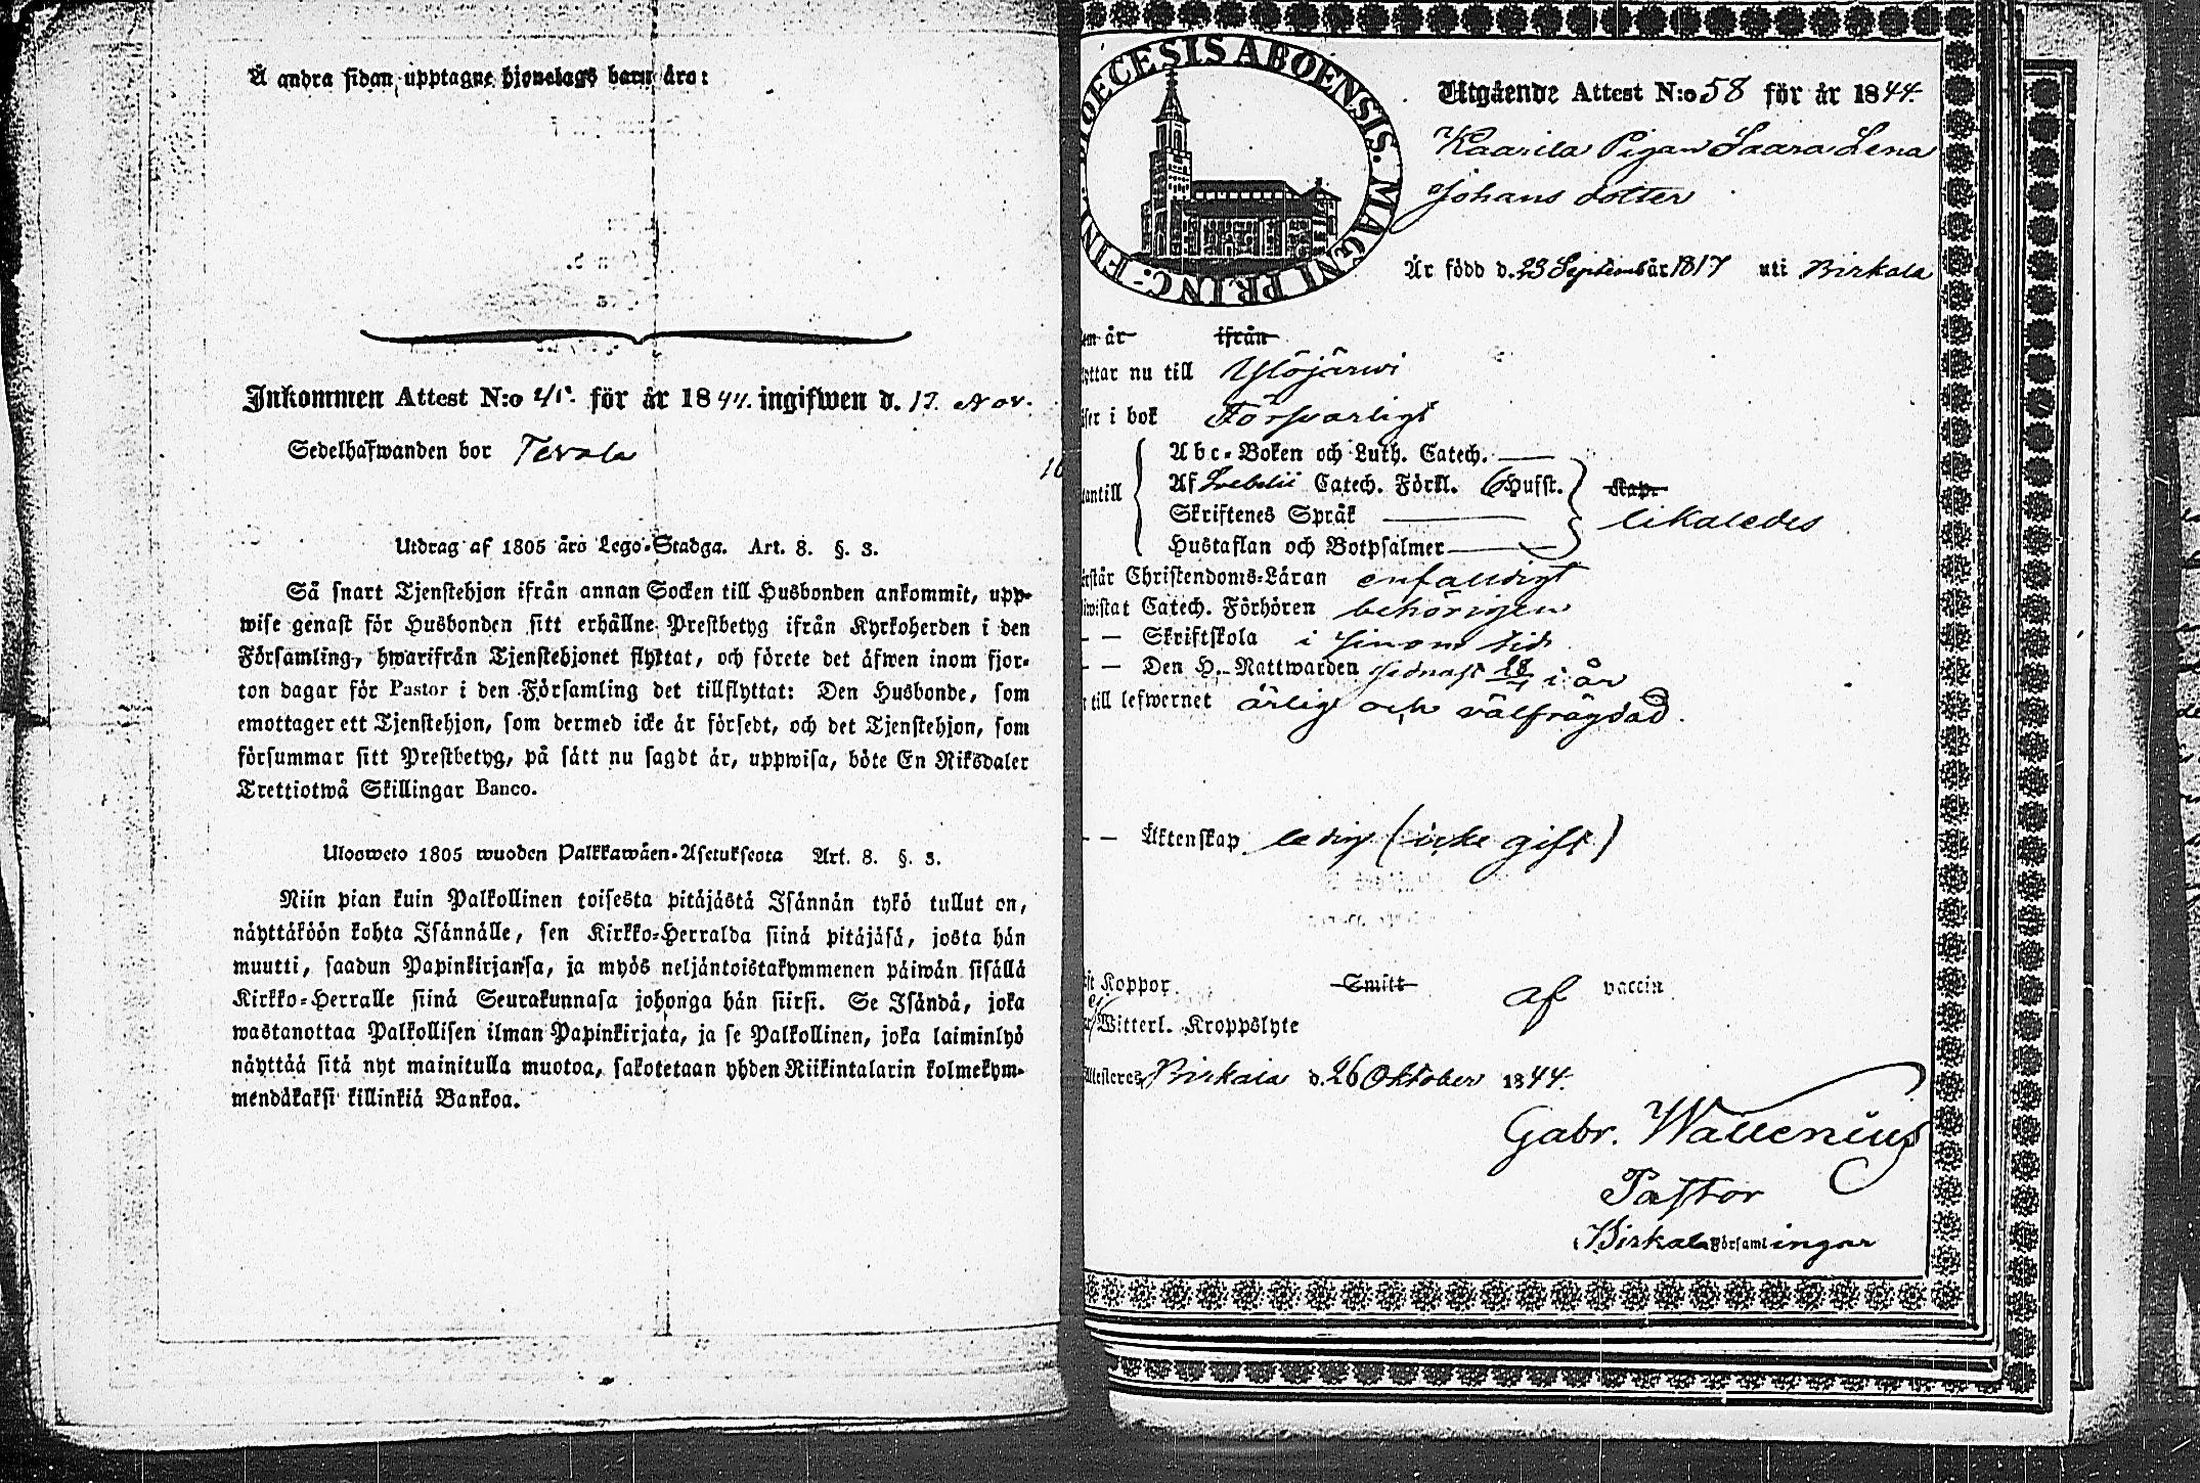 Å andra sidan upptagne hjonelags barn äro:
Inkommen Attest N:o 45. för år 1844. ingifwen d. 17. Nov.
Sedelhafwanden bor Terola
Utdrag af 1805 års Lego-Stadga. Art. 8. §. 3.
Så snart Tjenstehjon ifrån annan Socken till Husbonden ankommit, upp-
wise genast för Husbonden sitt erhållne Prestbetyg ifrån Kyrkoherden i den
Församling, hwarifrån Tjenstehjonet flyttat, och förete det äfwen inom fjor-
ton dagar för Pastor i den Församling det tillflyttat: Den Husbonde, som
emottager ett Tjenstehjon, som dermed icke är försedt, och det Tjenstehjon, som
försummar sitt Prestbetyg, på sätt nu sagdt är, uppwisa, böte En Riksdaler
Trettiotwå Skillingar Banco.
Ulosweto 1805 wuoden Palkkawäen-Asetuksesta Art. 8. §. 3.
Niin pian kuin Palkollinen toisesta pitäjästä Isännän tykö tullut on,
näyttäköön kohta Isännälle, sen Kirkko-Herralda siinä pitäjäsä, josta hän
muutti, saadun Papinkirjansa, ja myös neljäntoistakymmenen päiwän sisällä
Kirkko-Herralle siinä Seurakunnasa johonga hän siirsi. Se Isändä, joka
wastanottaa Palkollisen ilman Papinkirjata, ja se Palkollinen, joka laiminlyö
näyttää sitä nyt mainitulla muotoa, sakotetaan yhden Riikintalarin kolmekym-
mendäkaksi killinkiä Bankoa.
DIOECESIS ABOENSIS. MAGNI PRINC: FIN
Utgående Attest N:o 58 för år 1844.
Kaarila Pigan Saara Lena
Johans dotter
Är född d. 23 September år 1817 uti Birkala
em år ifrån
ttar nu till Ylöjärwi
ser i bok Försvarligt
Abc-Boken och Luth. Catech.
antill Af Svebelii Catech. Förkl. 6 Hufst. Kap.
Skriftenes Språk likaledes
Hustaflan och Botpsalmer
rstår Christendoms-Läran enfaldigt
wistat Catech. Förhören behörigen
— — Skriftskola i sinom tid
— — Den H. Nattwarden sednast i år
till lefwernet ärlig och välfrägdad.
— — Äktenskap ledig (icke gift)
ft Koppor Smitt af vaccin
Witterl. Kroppslyte
Attesteres, Birkala d. 26 Oktober 1844.
Gabr. Wallenius
Pastor
Birkala Församlingar